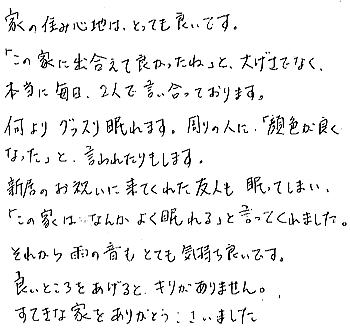 家の住み心地は、とっても良いです。
「この家に出合えて良かったね」と、大げさでなく、
本当に毎日、2人で言い合っております。
何より グッスリ眠れます。周りの人に、「顔色が良く
なった」と、言われたりもします。
新居のお祝いに来てくれた友人も 眠ってしまい、
「この家は なんか よく眠れる」と言ってくれました。
それから 雨の音も とても気持ち良いです。
良いところをあげると、キリがありません。
すてきな家をありがとうございました